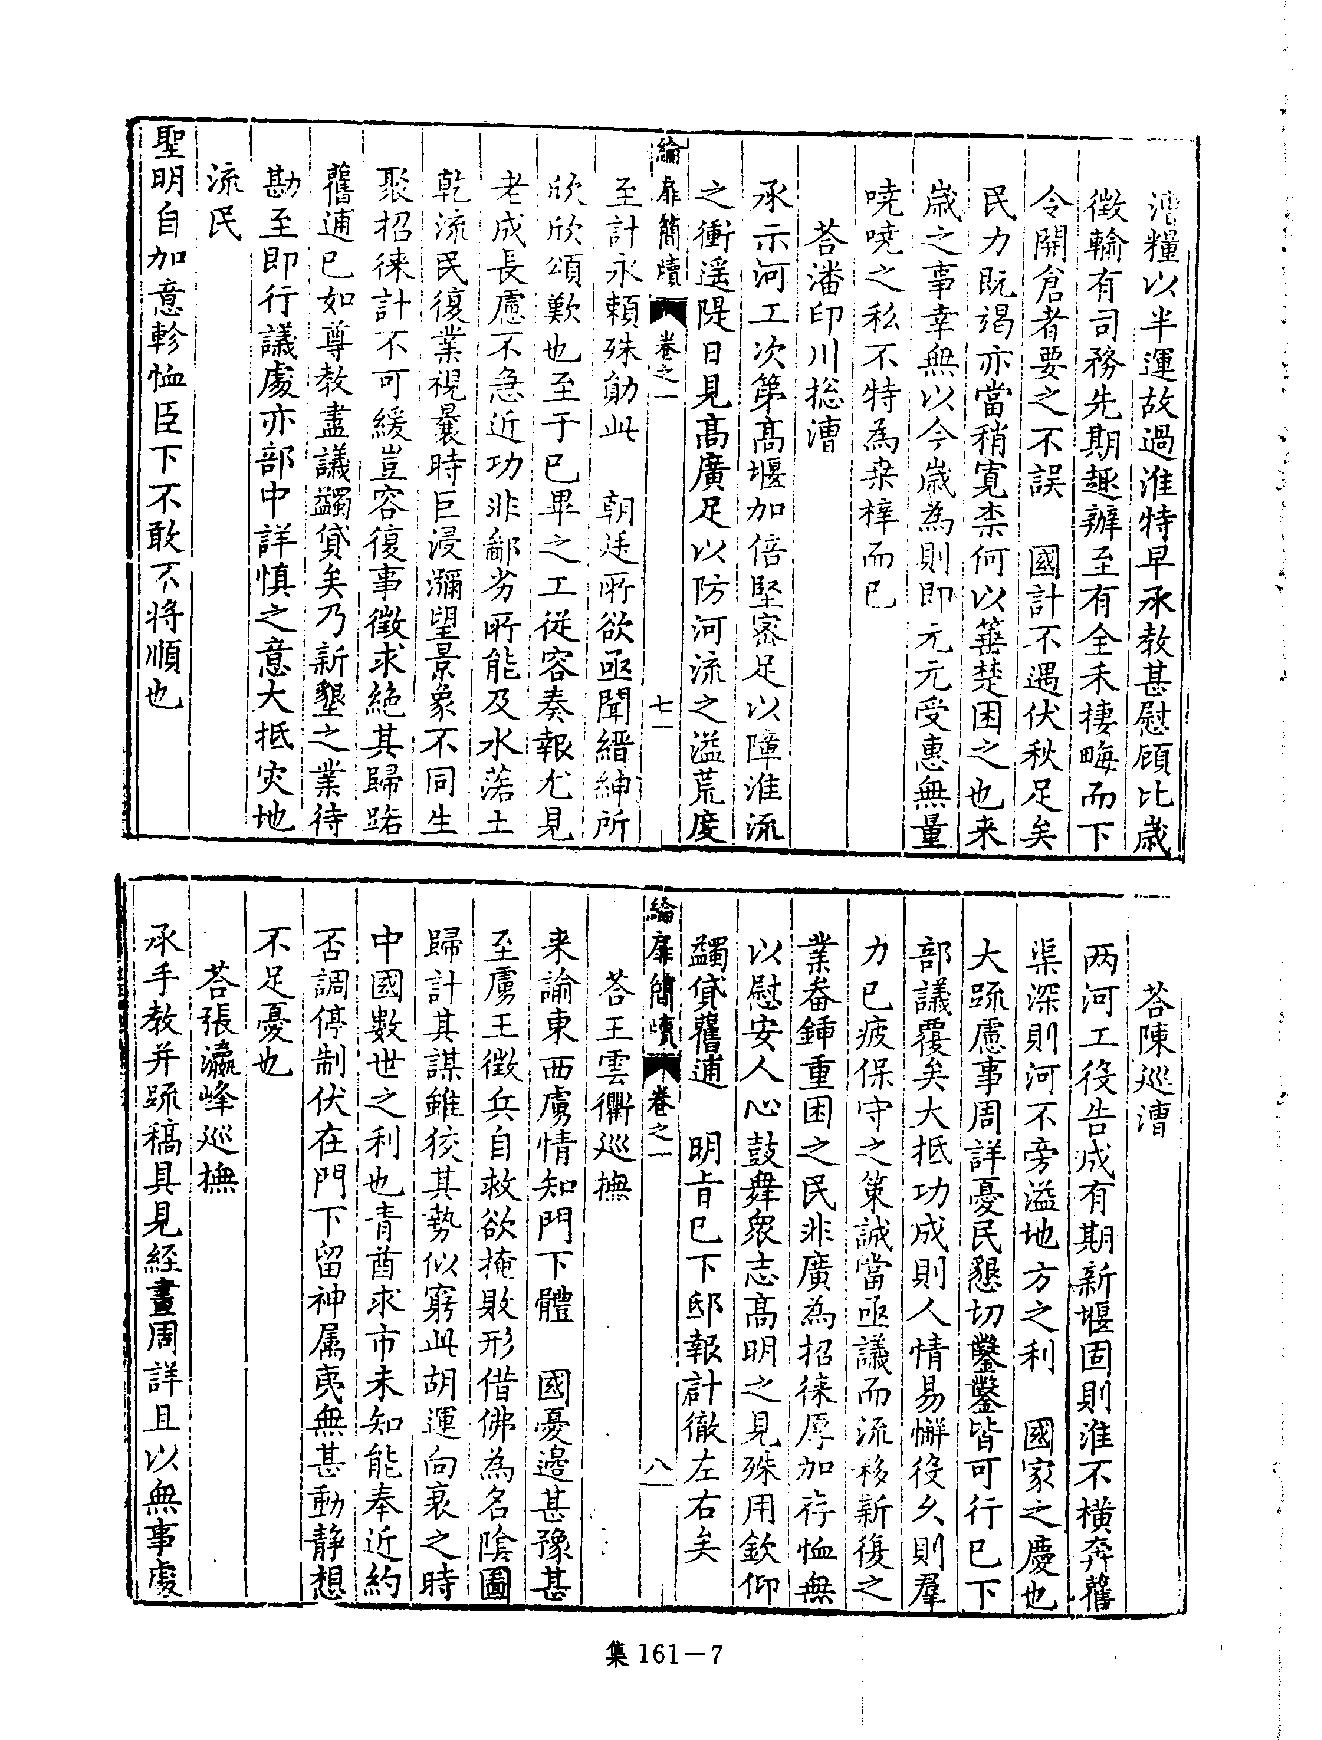 漕糧以半運故過淮特早承教甚慰顧比歲
徵輸有司務先期趣辦至有全禾棲畮而下
令開倉者要之不誤　國計不遇伏秋足矣
民力旣竭亦當稍寬柰何以箠楚困之也来
歲之事幸無以今歲為則即元元受惠無量
嘵嘵之私不特為桒梓而已
荅潘印川捴漕
承示河工次第髙堰加倍堅宻足以障淮流
之衝遥隄日見髙廣足以防河流之溢荒度
綸扉簡牘　卷之一　七
至計永頼殊勛此　朝廷所欲亟聞縉紳所
欣欣頌歎也至于已畢之工従容奏報尤見
老成長慮不急近功非鄙劣所能及水落土
乾流民復業視曩時巨浸瀰望景象不同生
聚招徠計不可緩豈容復事徵求絶其歸路
舊逋已如尊教盡議蠲貸矣乃新墾之業待
勘至即行議處亦部中詳慎之意大抵灾地
流民
聖明自加意軫恤臣下不敢不将順也
荅陳巡漕
两河工役告成有期新堰固則淮不横奔舊
渠深則河不旁溢地方之利　國家之慶也
大疏慮事周詳憂民懇切鑿鑿皆可行已下
部議覆矣大抵功成則人情易懈役久則羣
力已疲保守之策誠當亟議而流移新復之
業畚鍤重困之民非廣為招徠厚加存恤無
以慰安人心鼓舞衆志髙明之見殊用欽仰
蠲貸舊逋　明旨已下邸報計徹左右矣
綸扉簡牘　卷之一　八
荅王雲衢巡撫
来諭東西虜情知門下體　國憂邊甚豫甚
至虜王徵兵自救欲掩敗形借佛為名隂圖
歸計其謀雖狡其勢似窮此胡運向衰之時
中國數世之利也青酋求市未知能奉近約
否調停制伏在門下留神属夷無甚動静想
不足憂也
荅張瀛峰巡撫
承手教并疏稿具見経畫周詳且以無事處
集 161－7